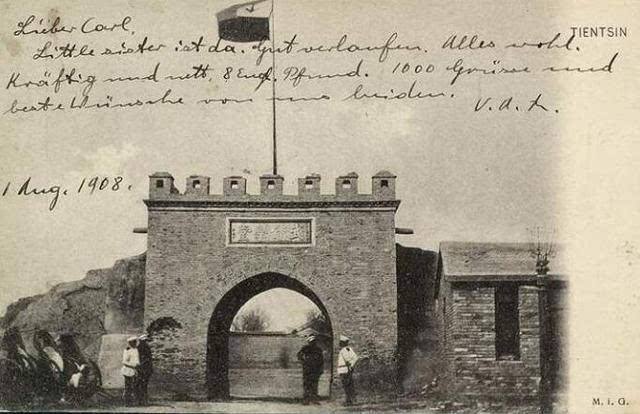 Lieber Carl,
TIENTSIN
Little sister ist da. Gut verlaufen. Alles wohl.
Kräftig und nett, 8 Engl. Pfund. 1000 Grüsse und
beste Wünsche von uns beiden.
V. d. A.
1 Aug. 1908.
M. i. G.